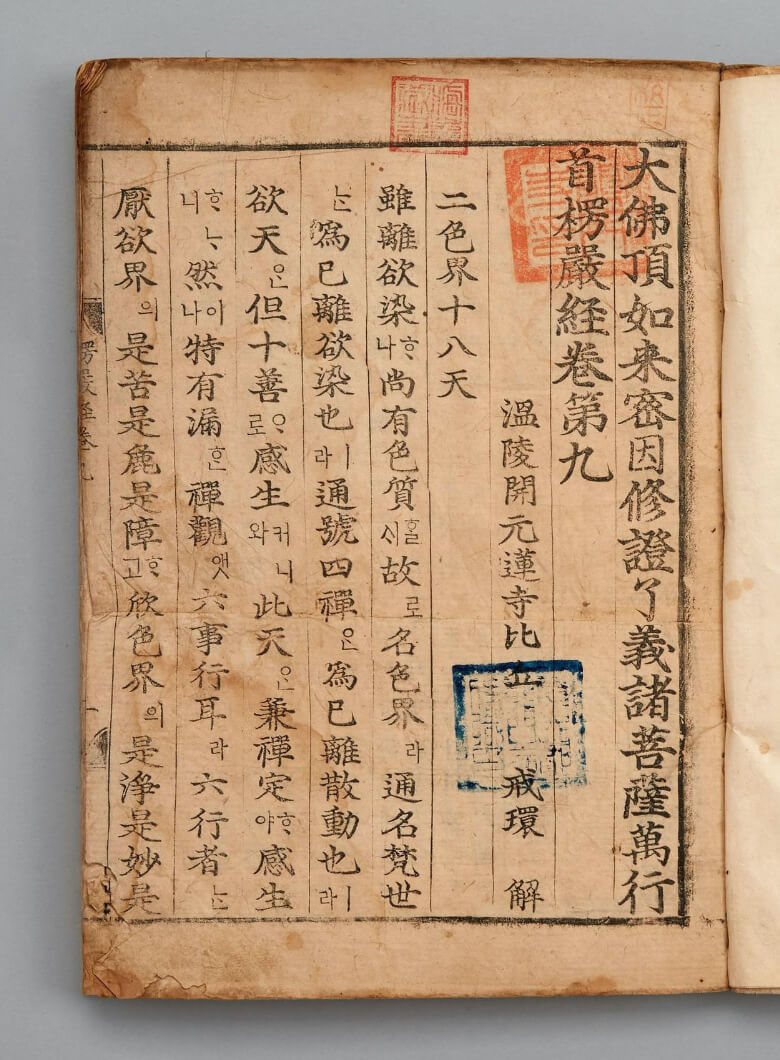 大佛頂如来密因修證了義諸菩薩萬行
首楞嚴経卷第九
溫陵開元蓮寺比丘 戒環 解
二色界十八天
雖離欲染ᄒᆞ나尚有色質ᄒᆞᆯ시故로名色界라通名梵世
ᄂᆞᆫ爲已離欲染也ㅣ라通號四禪ᄋᆞᆫ爲已離散動也ㅣ라
欲天ᄋᆞᆫ但十善ᄋᆞ로感生커니와此天ᄋᆞᆫ兼禪定ᄒᆞ야感生
ᄒᆞᄂᆞ니然이나特有漏ᄒᆞᆫ禪觀앳六事行耳라六行者ᄂᆞᆫ
厭欲界의是苦是麁是障ᄒᆞ고欣色界의是淨是妙是
楞嚴経卷九